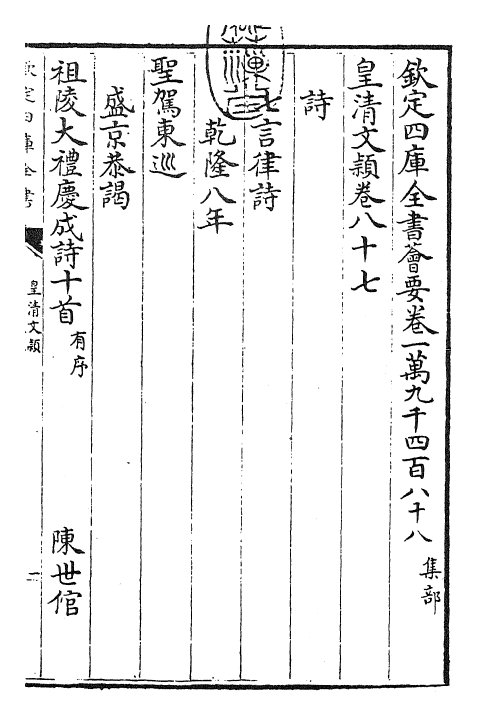 欽定四庫全書薈要卷一萬九千四百八十八 集部
皇清文穎卷八十七
詩
七言律詩
乾隆八年
聖駕東巡
盛京恭謁
祖陵大禮慶成詩十首 有序 陳世倌
欽定四庫全書
皇清文穎